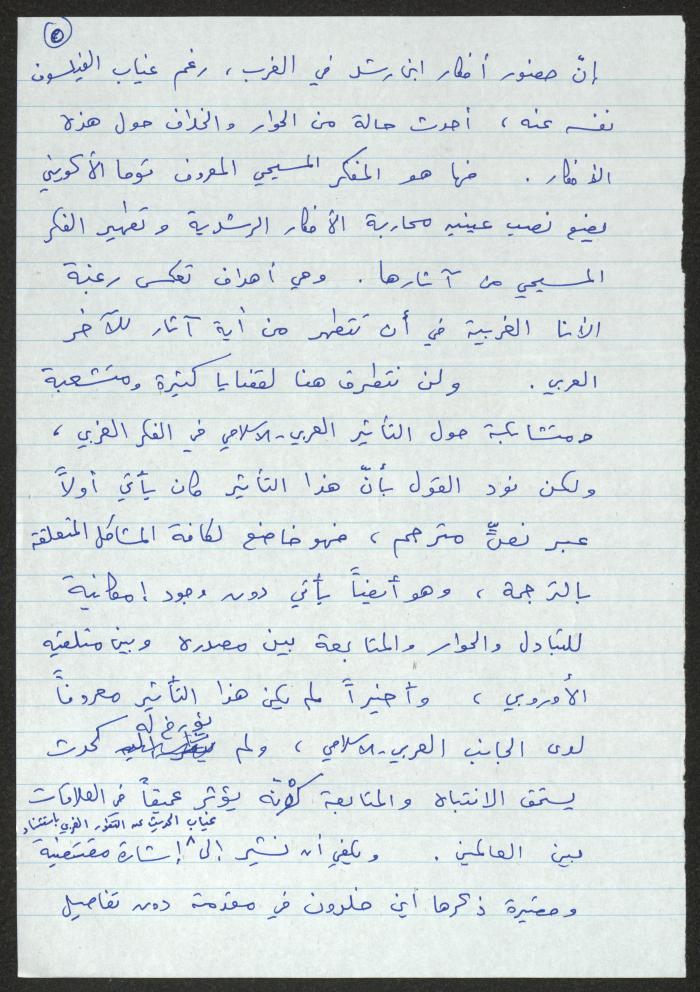 إنّ حضور أفكار ابن رشد في الغرب، رغم غياب الفيلسوف
نفسه عنه، أحدث حالة من الحوار والخلاف حول هذه
الأفكار. فها هو المفكر المسيحي المعروف توما الأكويني
يضع نصب عينيه محاربة الأفكار الرشدية وتطهير الفكر
المسيحي من آثارها. وهي أهداف تعكس رغبة
الأنا الغربية في أن تتطهر من أية آثار للآخر
العربي. ولن نتطرق هنا لقضايا كثيرة ومتشعبة
ومتشابكة حول التأثير العربي-الاسلامي في الفكر الغربي،
ولكن نود القول بأنّ هذا التأثير كان يأتي أولاً
عبر نصٍّ مترجم، فهو خاضع لكافة المشاكل المتعلقة
بالترجمة، وهو أيضاً يأتي دون وجود إمكانية
للتبادل والحوار والمتابعة بين مصدره وبين متلقيه
الأوروبي، وأخيراً لم يكن هذا التأثير معروفاً
لدى الجانب العربي-الاسلامي، ولم يؤرخ له كحدث
يستحق الانتباه والمتابعة لأنّه يؤثر عميقاً في العلاقات
بين العالمين. ويكفي أن نشير إلى غياب الحديث عن التطور الغربي باستثناء إشارة مقتضبة
وقصيرة ذكرها ابن خلدون في مقدمة دون تفاصيل